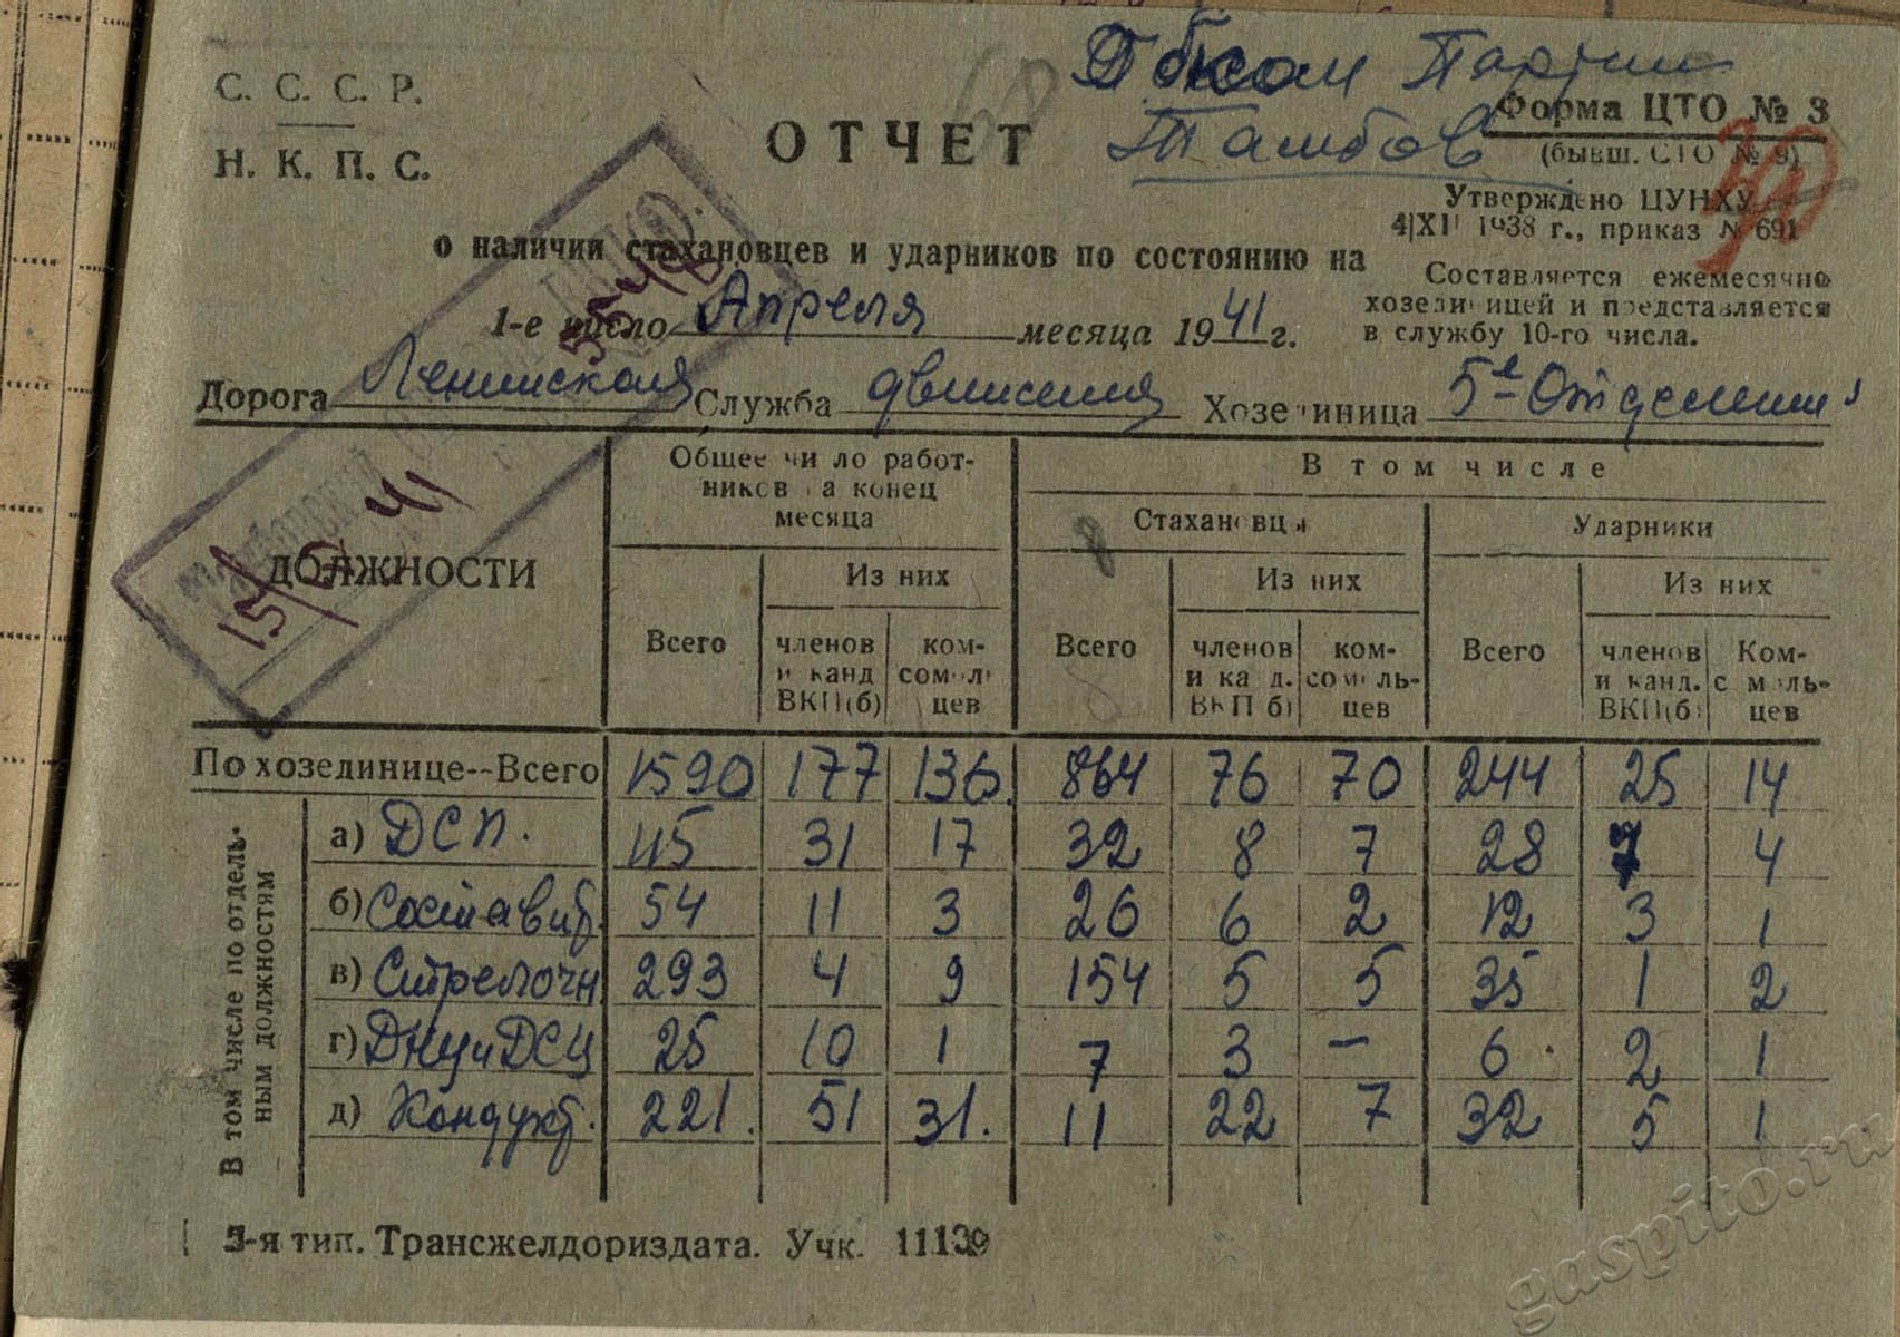 Обком Партии
Тамбов
С. С. С. Р.
Н. К. П. С.
ОТЧЕТ
Форма ЦТО № 3
(бывш. СТО № 9)
Утверждено ЦУНХУ
4|XII 1938 г., приказ № 691
о наличии стахановцев и ударников по состоянию на
1-е число Апреля месяца 1941 г.
Составляется ежемесячно
хозединицей и представляется
в службу 10-го числа.
Дорога Ленинская Служба движения Хозединица 5-е Отделение
15/IV 41
ДОЛЖНОСТИ
Общее число работ-
ников на конец
месяца
В том числе
Стахановцы
Ударники
Всего
Из них
членов
и канд
ВКП(б)
ком-
сомоль
цев
Всего
Из них
членов
и канд.
ВКП(б)
ком-
сомоль-
цев
Всего
Из них
членов
и канд.
ВКП(б)
Ком-
сомоль-
цев
По хозединице--Всего 1590 177 136. 864 76 70 244 25 14
В том числе по отдель-
ным должностям
а) ДСП. 115 31 17 32 8 7 28 7 4
б) Составит. 54 11 3 26 6 2 12 3 1
в) Стрелочн. 293 4 9 154 5 5 35 1 2
г) ДНЦ и ДСЦ 25 10 1 7 3 — 6 2 1
д) Кондукт. 221. 51 31. 11 22 7 32 5 1
3-я тип. Трансжелдориздата. Учк. 11139
gaspito.ru